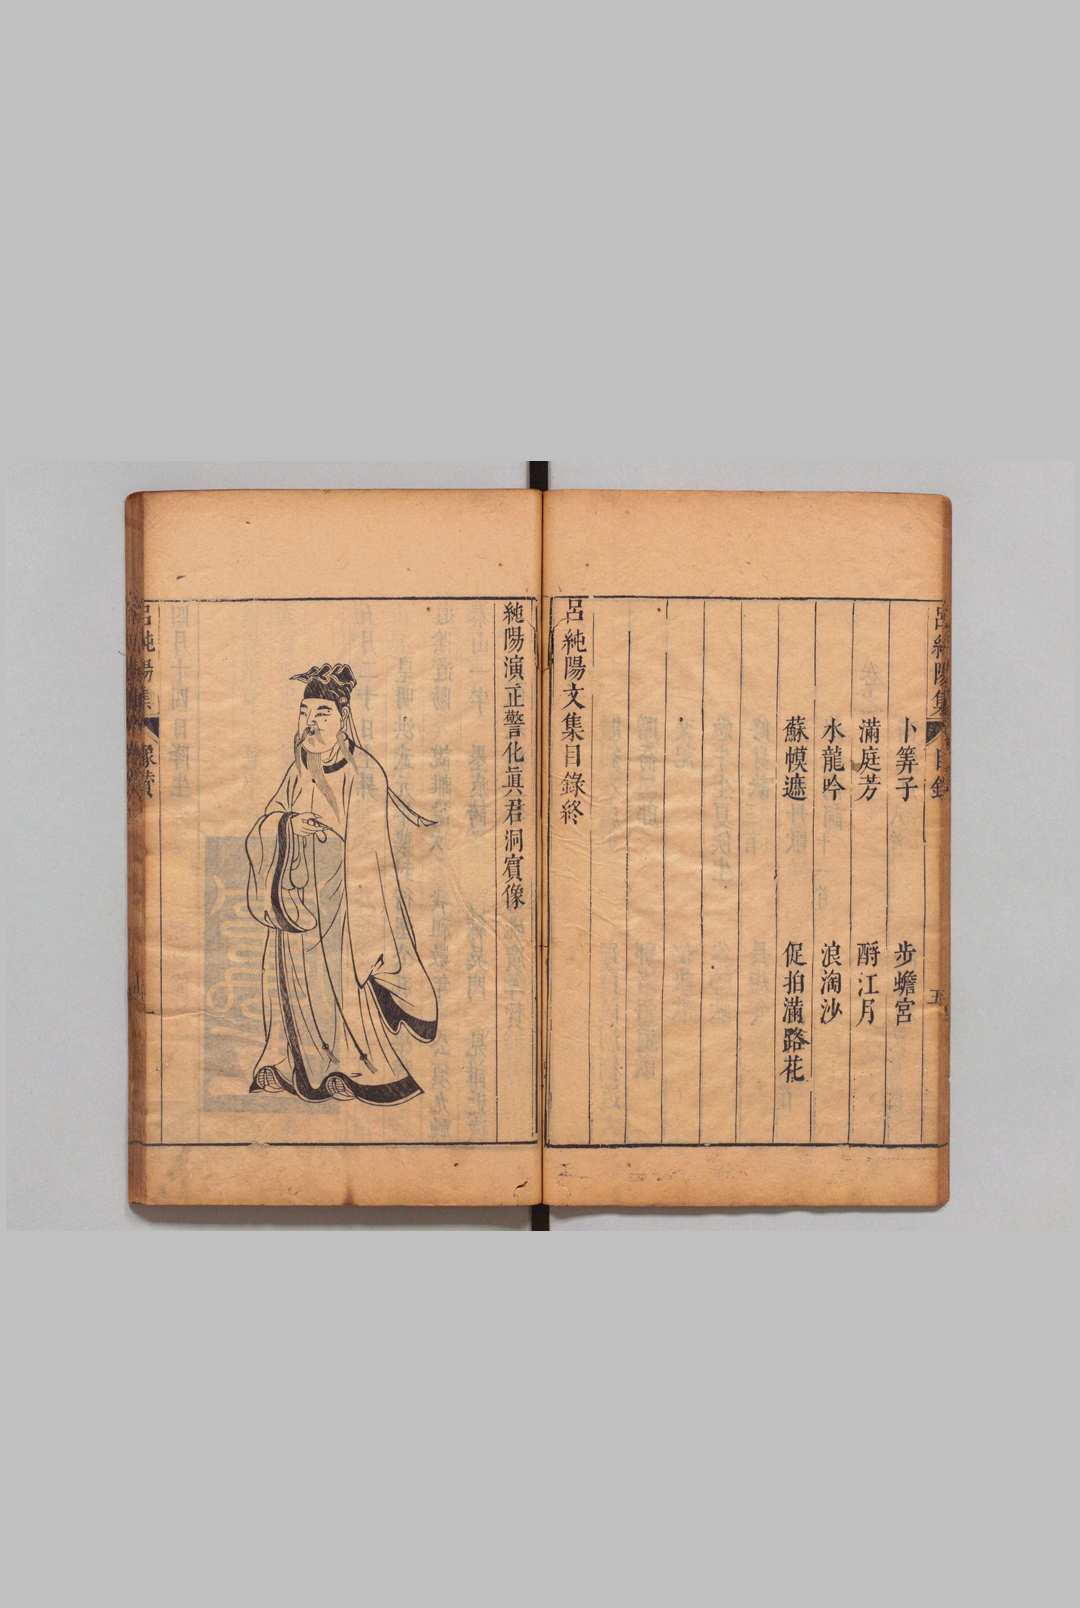 呂純陽集
目錄
五
卜筭子
步蟾宮
滿庭芳
酹江月
水龍吟
浪淘沙
蘇幙遮
促拍滿路花
呂純陽文集目錄終
純陽演正警化眞君洞賓像
呂純陽集
像贊